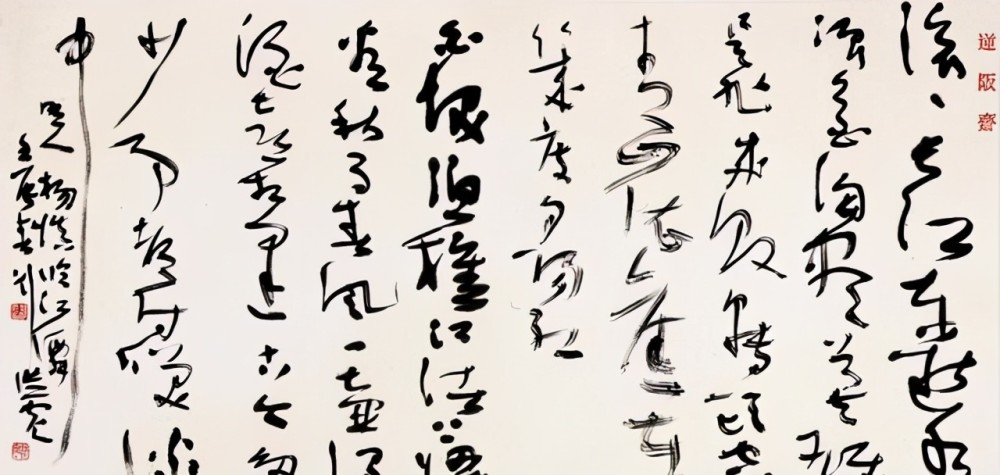 逆阪齋
滚滚长江东逝水
浪花淘尽英雄
是非成败转头空
青山依旧在
几度夕阳红
白发渔樵江渚上惯
看秋月春风一壶浊
酒喜相逢古今多
少事都付笑谈
中
杨慎临江